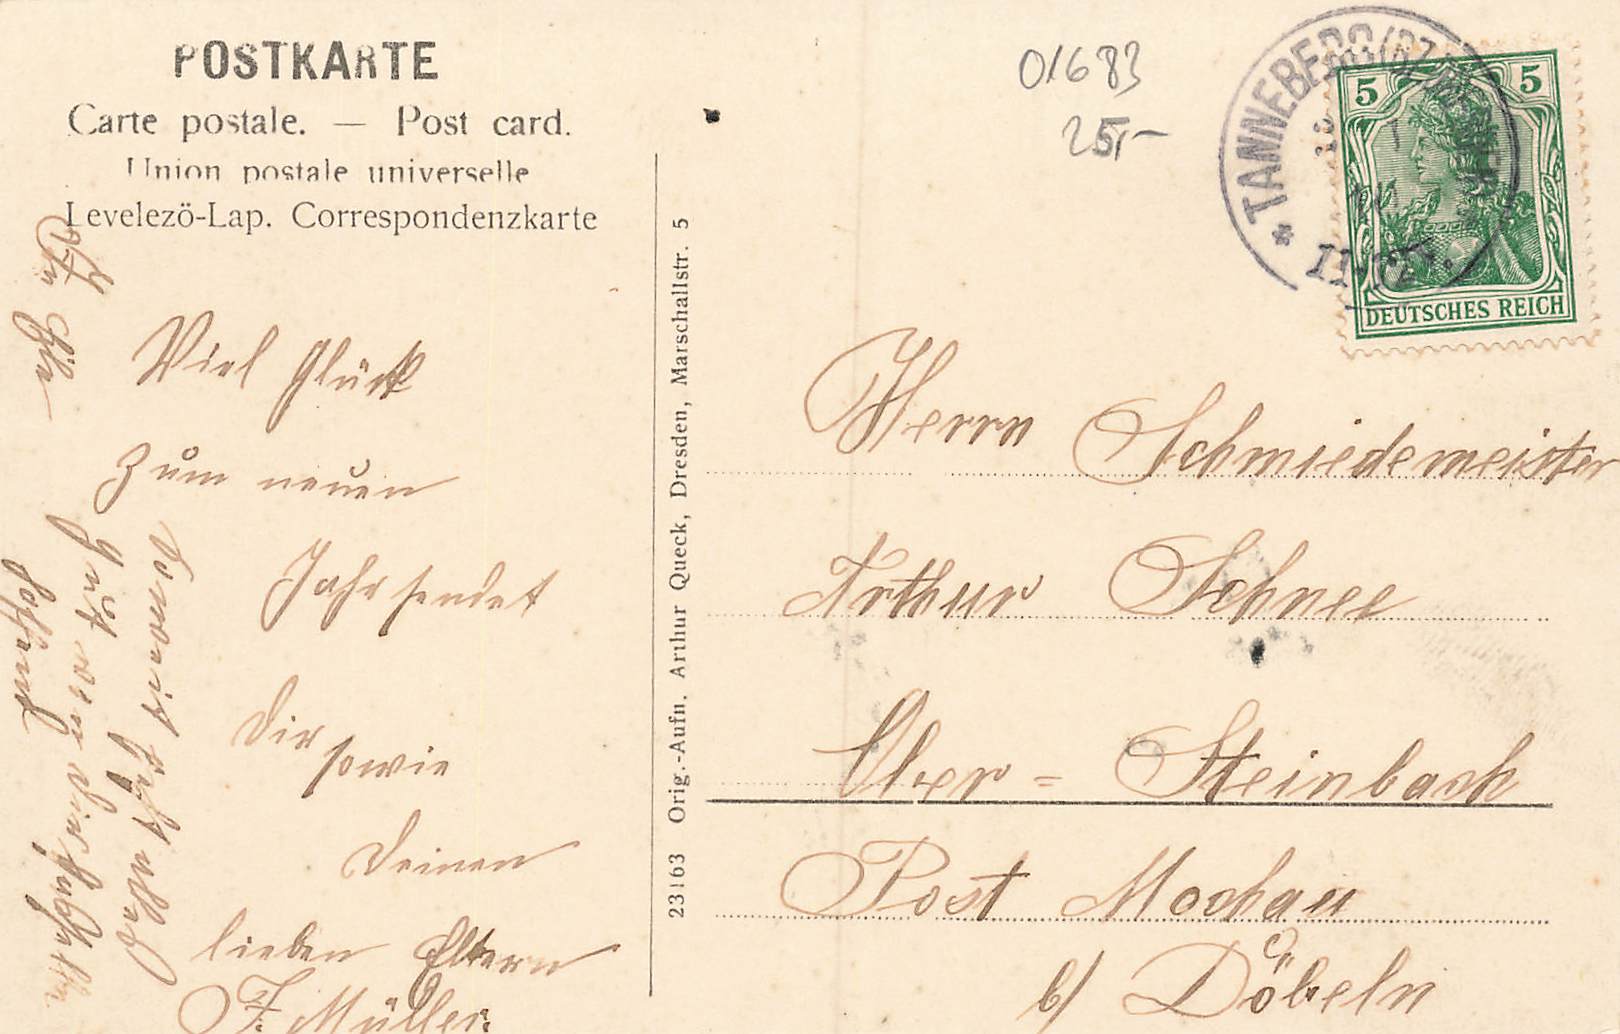 POSTKARTE
Carte postale. — Post card.
Union postale universelle
Levelezö-Lap. Correspondenzkarte
Viel Glück
zum neuen
Jahr sendet
Dir sowie
Deinen
lieben Eltern
F. Müller.
23163 Orig.-Aufn. Arthur Queck, Dresden, Marschallstr. 5
01683
25,-
* TANNEBERG (BZ.
5 5
DEUTSCHES REICH
Herrn Schmiedemeister
Arthur Schnee
Ober=Steinbach
Post Mochau
b/ Döbeln